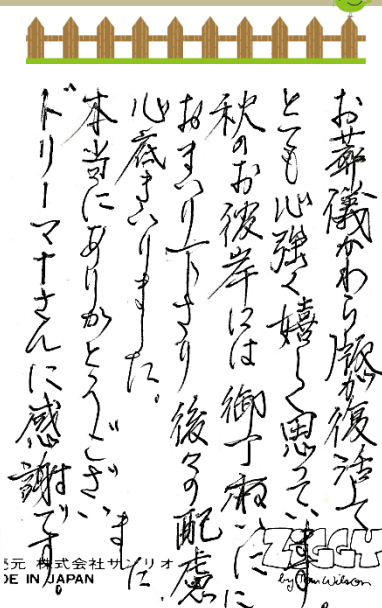 お葬儀かわら版が復活して
とても心強く嬉しく思っています。
秋のお彼岸には御丁寧に
おまいり下さり後々の配慮に
心底まいりました。
本当にありがとうございました
ドリーマナさんに感謝です。
売元 株式会社サンリオ
DE IN JAPAN
ZIGGY
by Tom Wilson